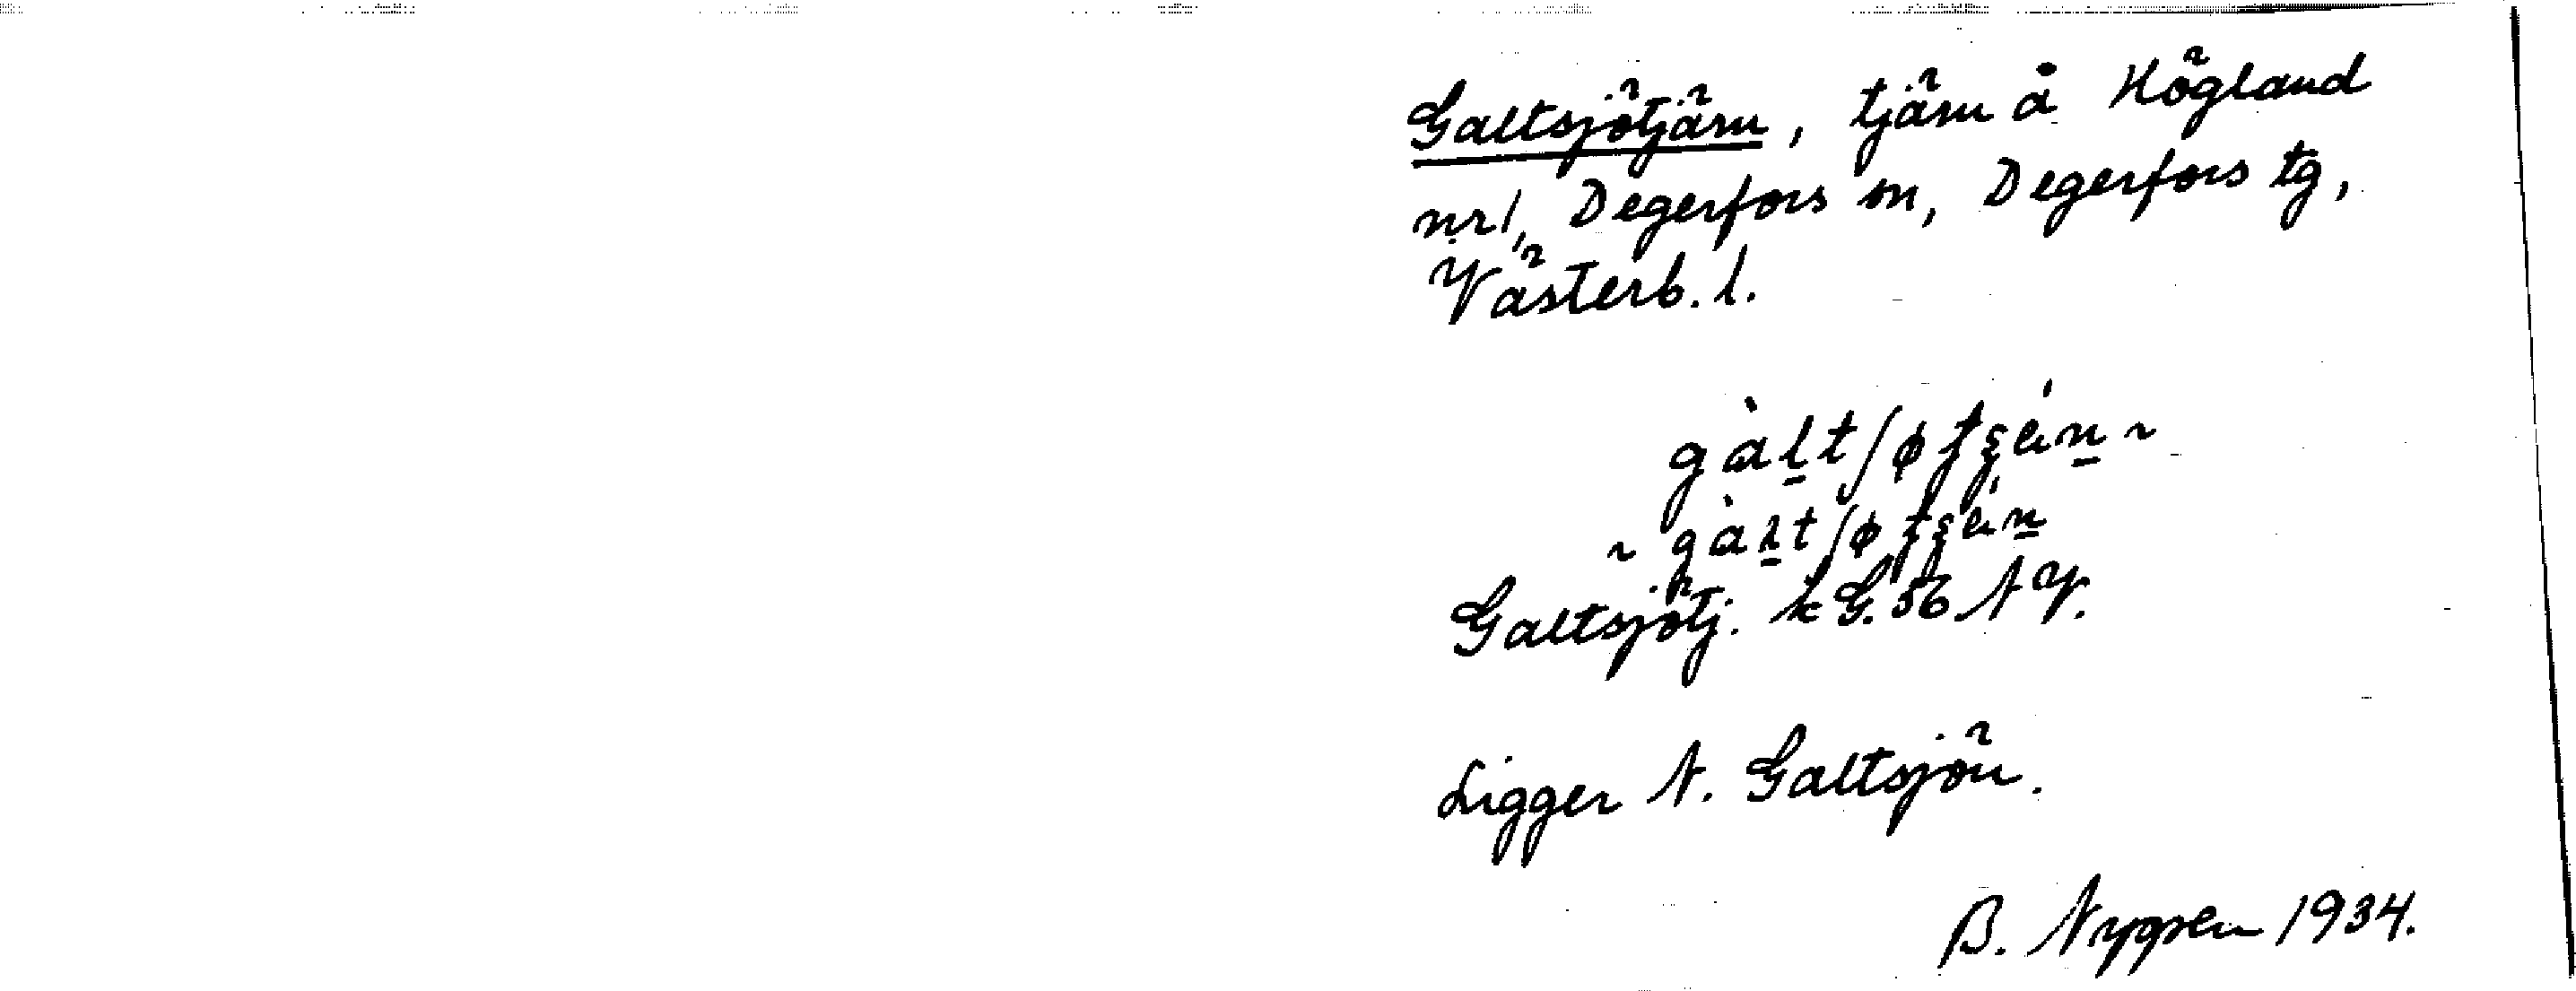 Galtsjötjärn, tjärn å Högland
nr 1, Degerfors sn, Degerfors tg,
Västerb. l.
Galtsjötj. k G. 56 NV.
Ligger N. Galtsjön.
B. Nygren 1934.